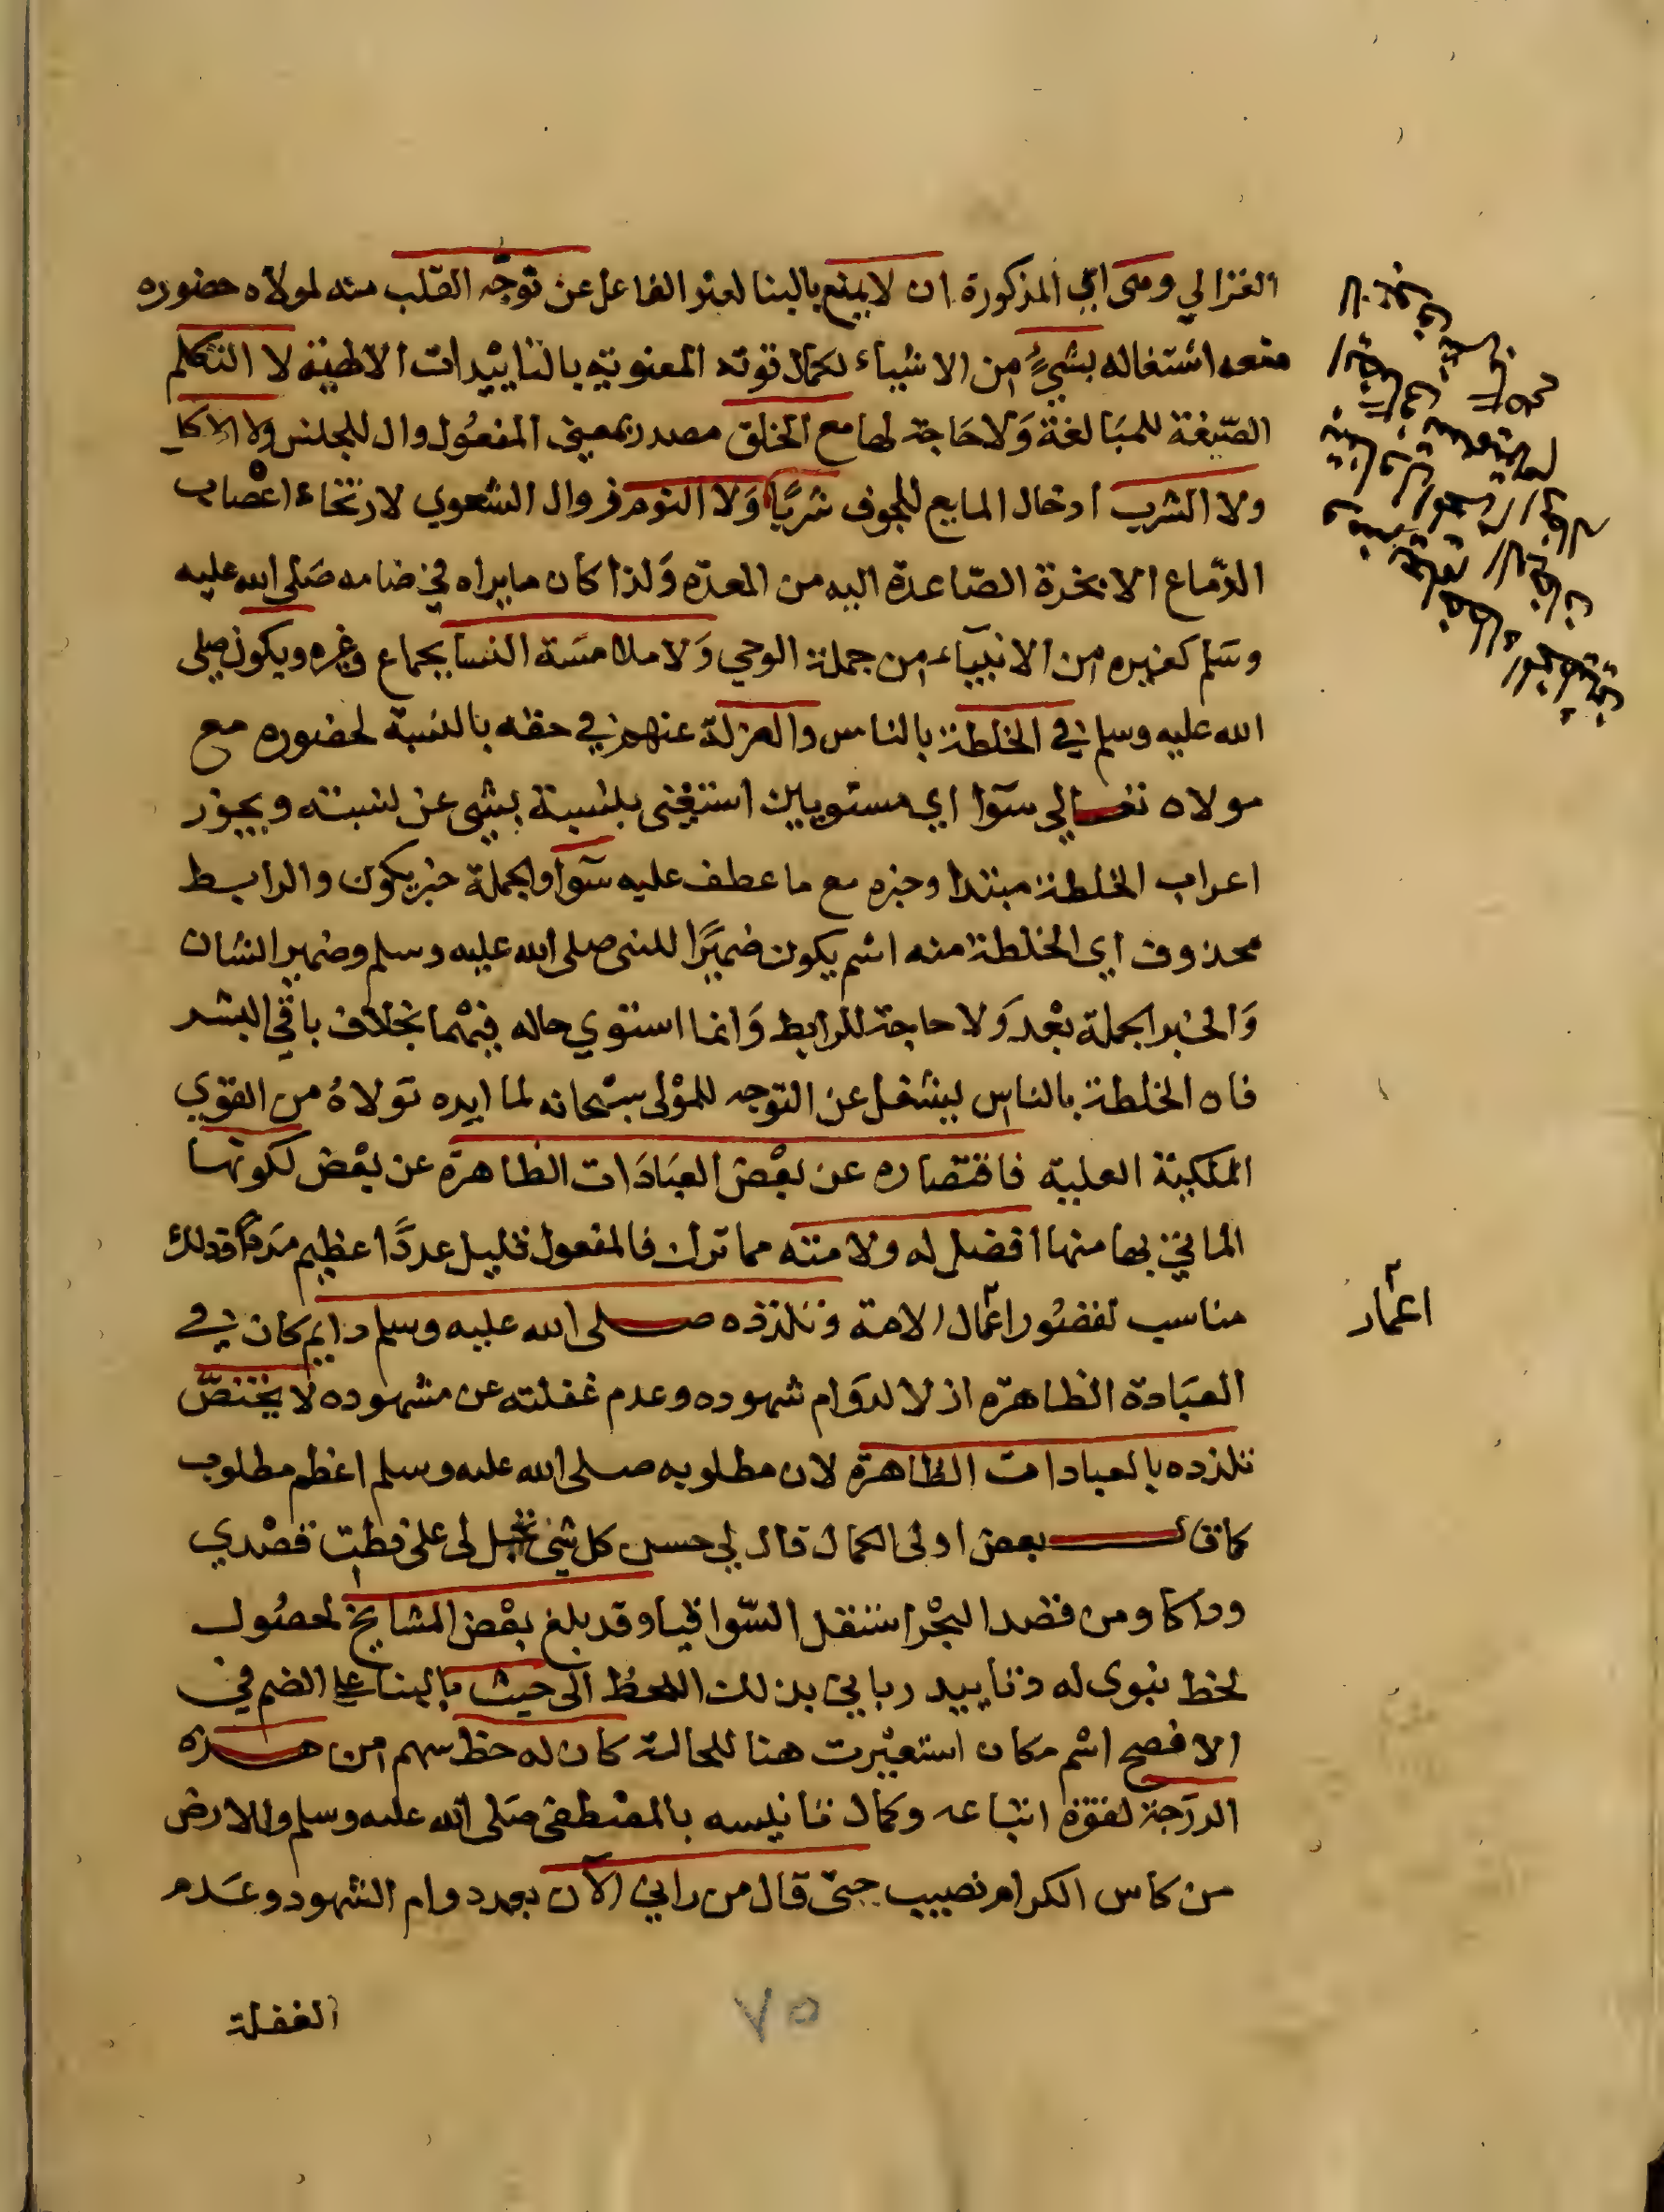 الغزالي ومتى ابي المذكورة ان لا يمنع بالبنا لغير الفاعل عن توجّه القلب منه لمولاه حضوره
معه اشتغاله بشيءٍ من الاشياء لكمال قوته المعنويه بالتاييدات الالهية لا التكلم
الصّيغة للمبَالغة وَلا حَاجة لها مع الخلق مصدر بمعنى المفعُول وال للجنس ولا الاكل
ولا الشرب ادخال المايع للجوف شربًا وَلا النوم زوال الشعوي لارتخاء اعْصاب
الدّماع الابخرة الصّاعدة اليه من المعدّه وَلذا كان ما يراه في ضامه صَلى الله عليه
وسَلم كغيره من الانبيَاء من جملة الوحي وَلا ملامسَة النسا بجماع وغره ويكون صلى
الله عليه وسلم في الخلطة بالناس والعزلة عنهم في حقه بالنسبة لحضوره مع
مولاه تعالى سَوا اي مستويين استغنى بلنسبة بشي عن لنسبته ويجوز
اعراب الخلطة مبتدا وخبره مع ما عطف عليه سَوا والجملة خبر يكون والرابط
محذوف اي الخلطة منه اسْم يكون ضميرًا للنبي صلى الله عليه وسلم وضمير الشان
وَالخبر الجملة بعْد وَلا حاجة للرابط وَانما استوي حاله فيهْما بخلاف باقي البشر
فان الخلطة بالناس ليشغل عن التوجه للموْلى سبْحانه لما ايده تَولاهُ من القوي
الملكية العلية فاقتصاره عن بعْض العبَادَات الظاهرَة عن بعْض لكونها
الماتي بها منها افضل له ولامته مما ترك فالمفعول قليل عددًا عظيم مَددًا وذلك
مناسب لقصُور اعمال الامة وتلذذه صلى الله عليه وسلم دايم كان في
العبَادة الظاهرَه اذ لا لدوَام شهوده وعدم غفلته عن مشهوده لا يختصّ
تلذذه بالعبادات الظاهرَة لان مطلوبه صلى الله عليه وسلم اعظم مطلوب
كما قال بعض اولى الكمال قال لي حسن كل شي تجلى لي تملى فقلت قصْدي
وراكا ومن قصد البحْر استقل السّواقيا وقد بلغ بعْض المشايخ لحصُول
لحظ نبوى له وتاييد رباني بذلك اللحظ الى حيث بالبنا على الضم في
الافصح اسْم مكان استعيْرت هنا للحالة كان له حظ سهم من هذه
الدرَجة لقوّة اتباعه وكمال تانيسه بالمصْطفى صَلى الله عليه وسلم وللارض
من كاس الكرام نصيب حتى قال من رابي الآن بعد دوام الشهود وعَدم
الغفلة
اعمار
٧٥